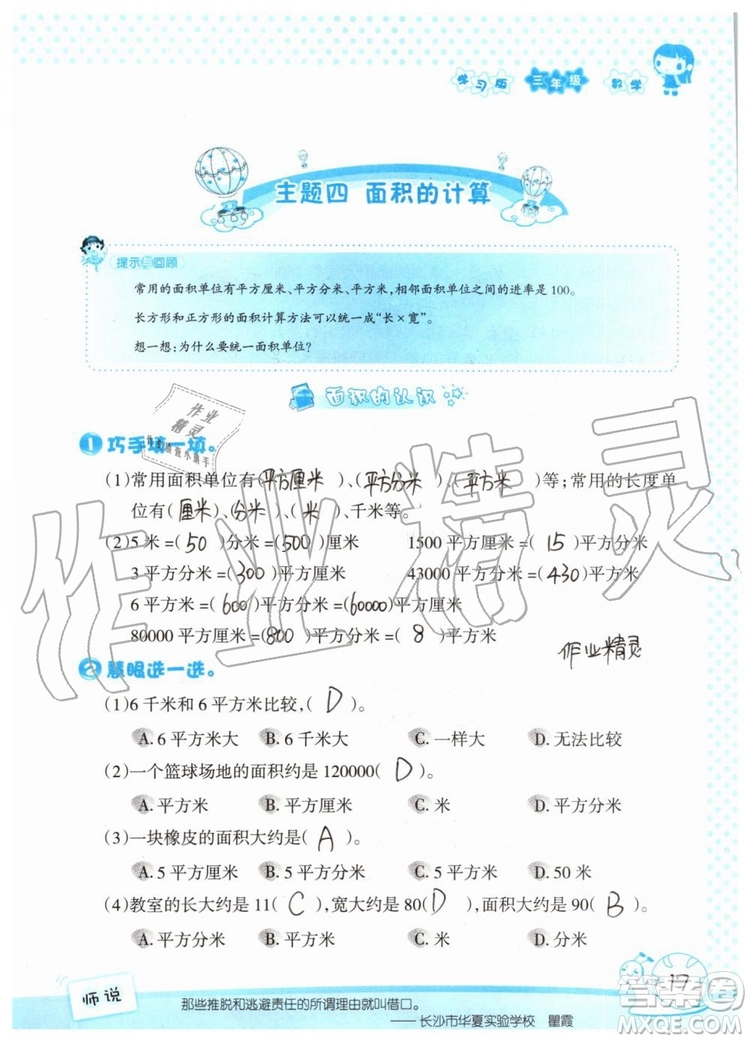 学习版 三年级 数学
主题四 面积的计算
提示与回顾
常用的面积单位有平方厘米、平方分米、平方米,相邻面积单位之间的进率是100。
长方形和正方形的面积计算方法可以统一成“长×宽”。
想一想:为什么要统一面积单位?
面积的认识
1 巧手填一填。
(1)常用面积单位有(平方厘米)、(平方分米)、(平方米)等;常用的长度单
位有(厘米)、(分米)、(米)、千米等。
(2)5米=(50)分米=(500)厘米 1500平方厘米=(15)平方分米
3平方分米=(300)平方厘米 43000平方厘米=(430)平方分米
6平方米=(600)平方分米=(60000)平方厘米
80000平方厘米=(800)平方分米=(8)平方米
作业精灵
2 慧眼选一选。
(1)6千米和6平方米比较,(D)。
A.6平方米大 B.6千米大 C.一样大 D.无法比较
(2)一个篮球场地的面积约是120000(D)。
A.平方米 B.平方厘米 C.米 D.平方分米
(3)一块橡皮的面积大约是(A)。
A.5平方厘米 B.5平方分米 C.5平方米 D.50米
(4)教室的长大约是11(C),宽大约是80(D),面积大约是90(B)。
A.平方分米 B.平方米 C.米 D.分米
17
师说
那些推脱和逃避责任的所谓理由就叫借口。
——长沙市华夏实验学校 瞿霞
作业精灵
作业精灵
答案圈